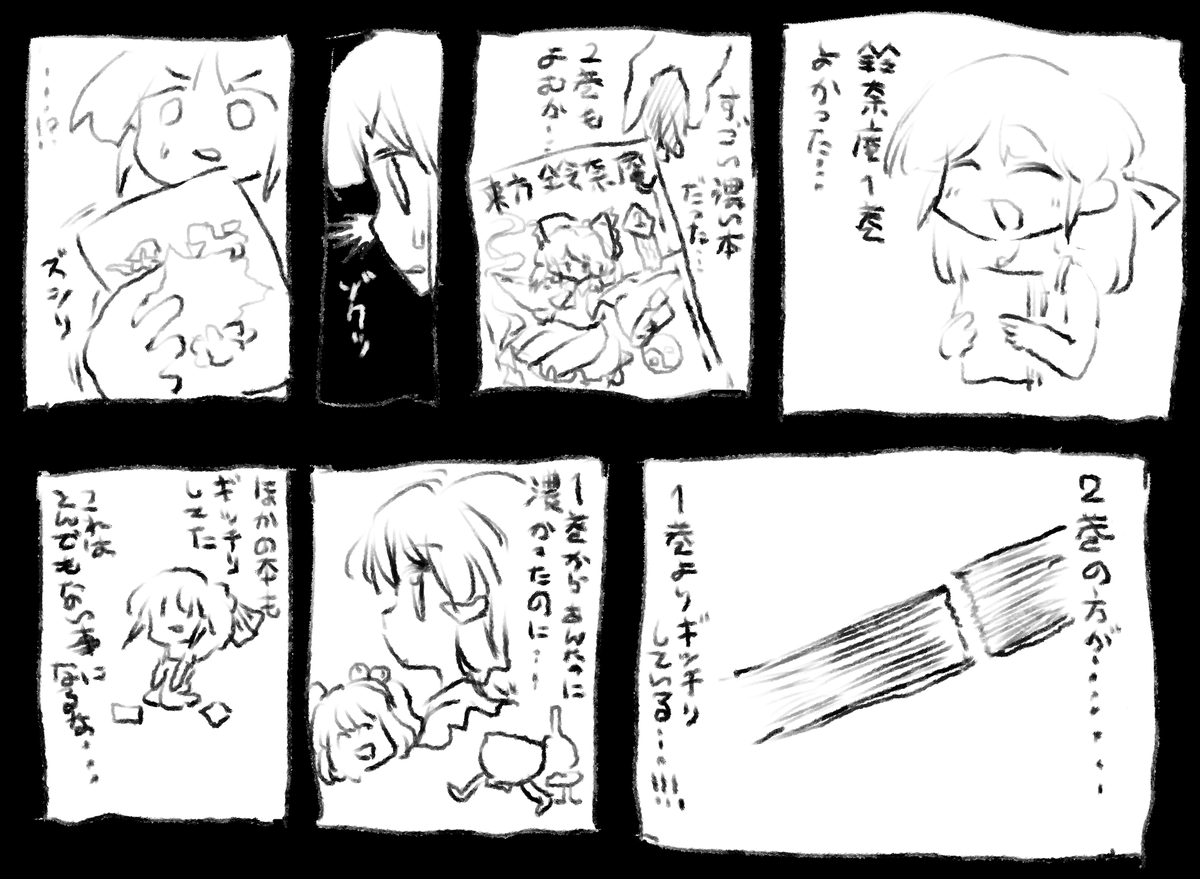 鈴奈庵1巻
よかった…
すごい濃い本
だった…
2巻も
よむか…
東方鈴奈庵
ゾクリ
……!?
ズシリ
2巻の方が………
1巻よりギッチリ
している…!!!
1巻からあんなに
濃かったのに…
ほかの本も
ギッチリ
してた
これは
とんでもない事に
なるな…